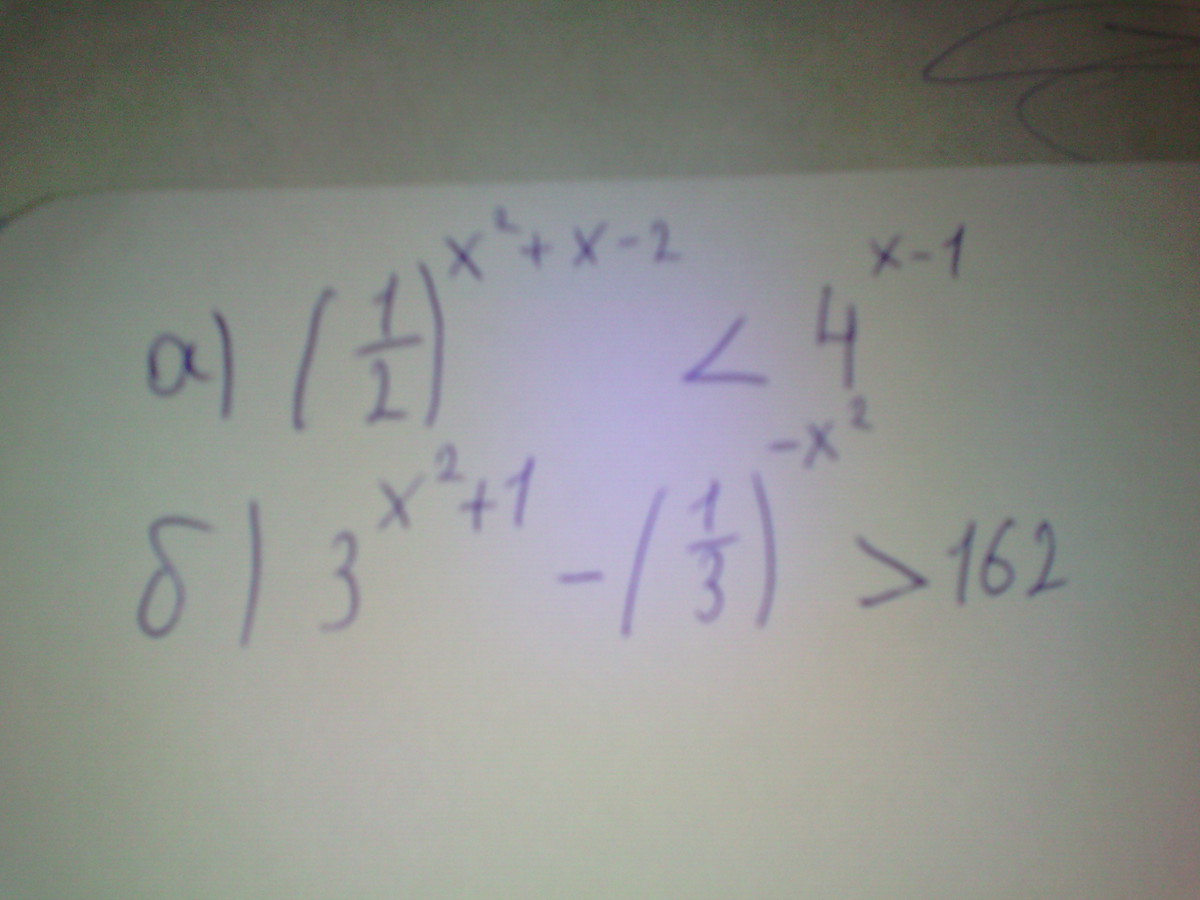 а) (1/2)^(x²+x-2) < 4^(x-1)
б) 3^(x²+1) - (1/3)^(-x²) > 162